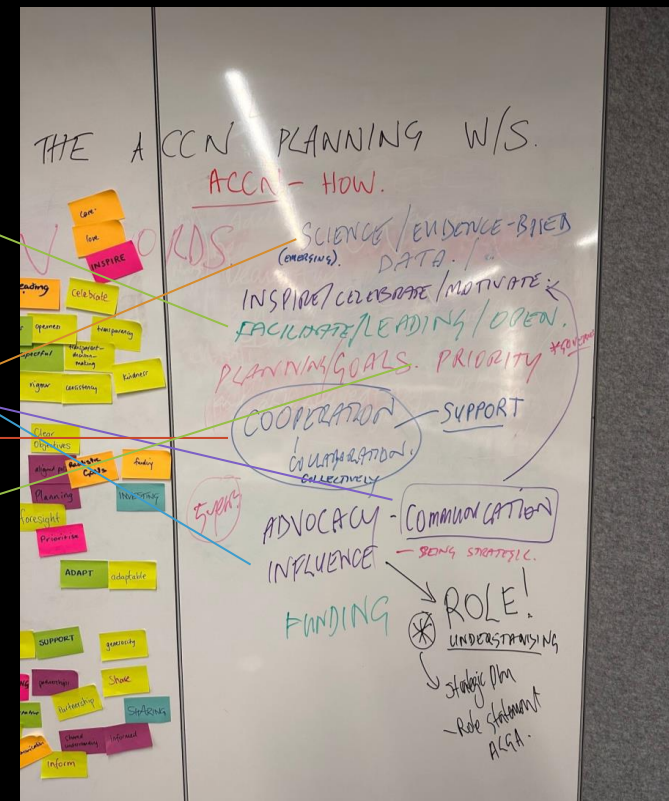 THE ACCN PLANNING W/S.
ACCN - HOW.
WORDS.
SCIENCE / EVIDENCE-BASED
(EMERGING). DATA. /
INSPIRE / CELEBRATE / MOTIVATE.
FACILITATE / LEADING / OPEN.
PLANNING/GOALS. PRIORITY
COOPERATION - SUPPORT
COLLABORATION.
COLLECTIVELY
ADVOCACY - COMMUNICATION
INFLUENCE - BEING STRATEGIC.
FUNDING
ROLE!
UNDERSTANDING
Strategic Plan
- Role statement
ALGA.
care
love
INSPIRE
leading
celebrate
openness
transparency
transparent
decision
making
rigour
consistency
kindness
Clear
Objectives
Realistic
Goals
funding
Planning
INVESTING
foresight
Prioritise
ADAPT
adaptable
SUPPORT
generosity
Share
Partnership
SHARING
informed
inform